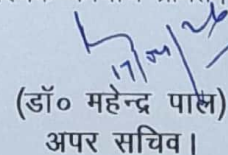 17/04/26
(डॉ० महेन्द्र पाल)
अपर सचिव।